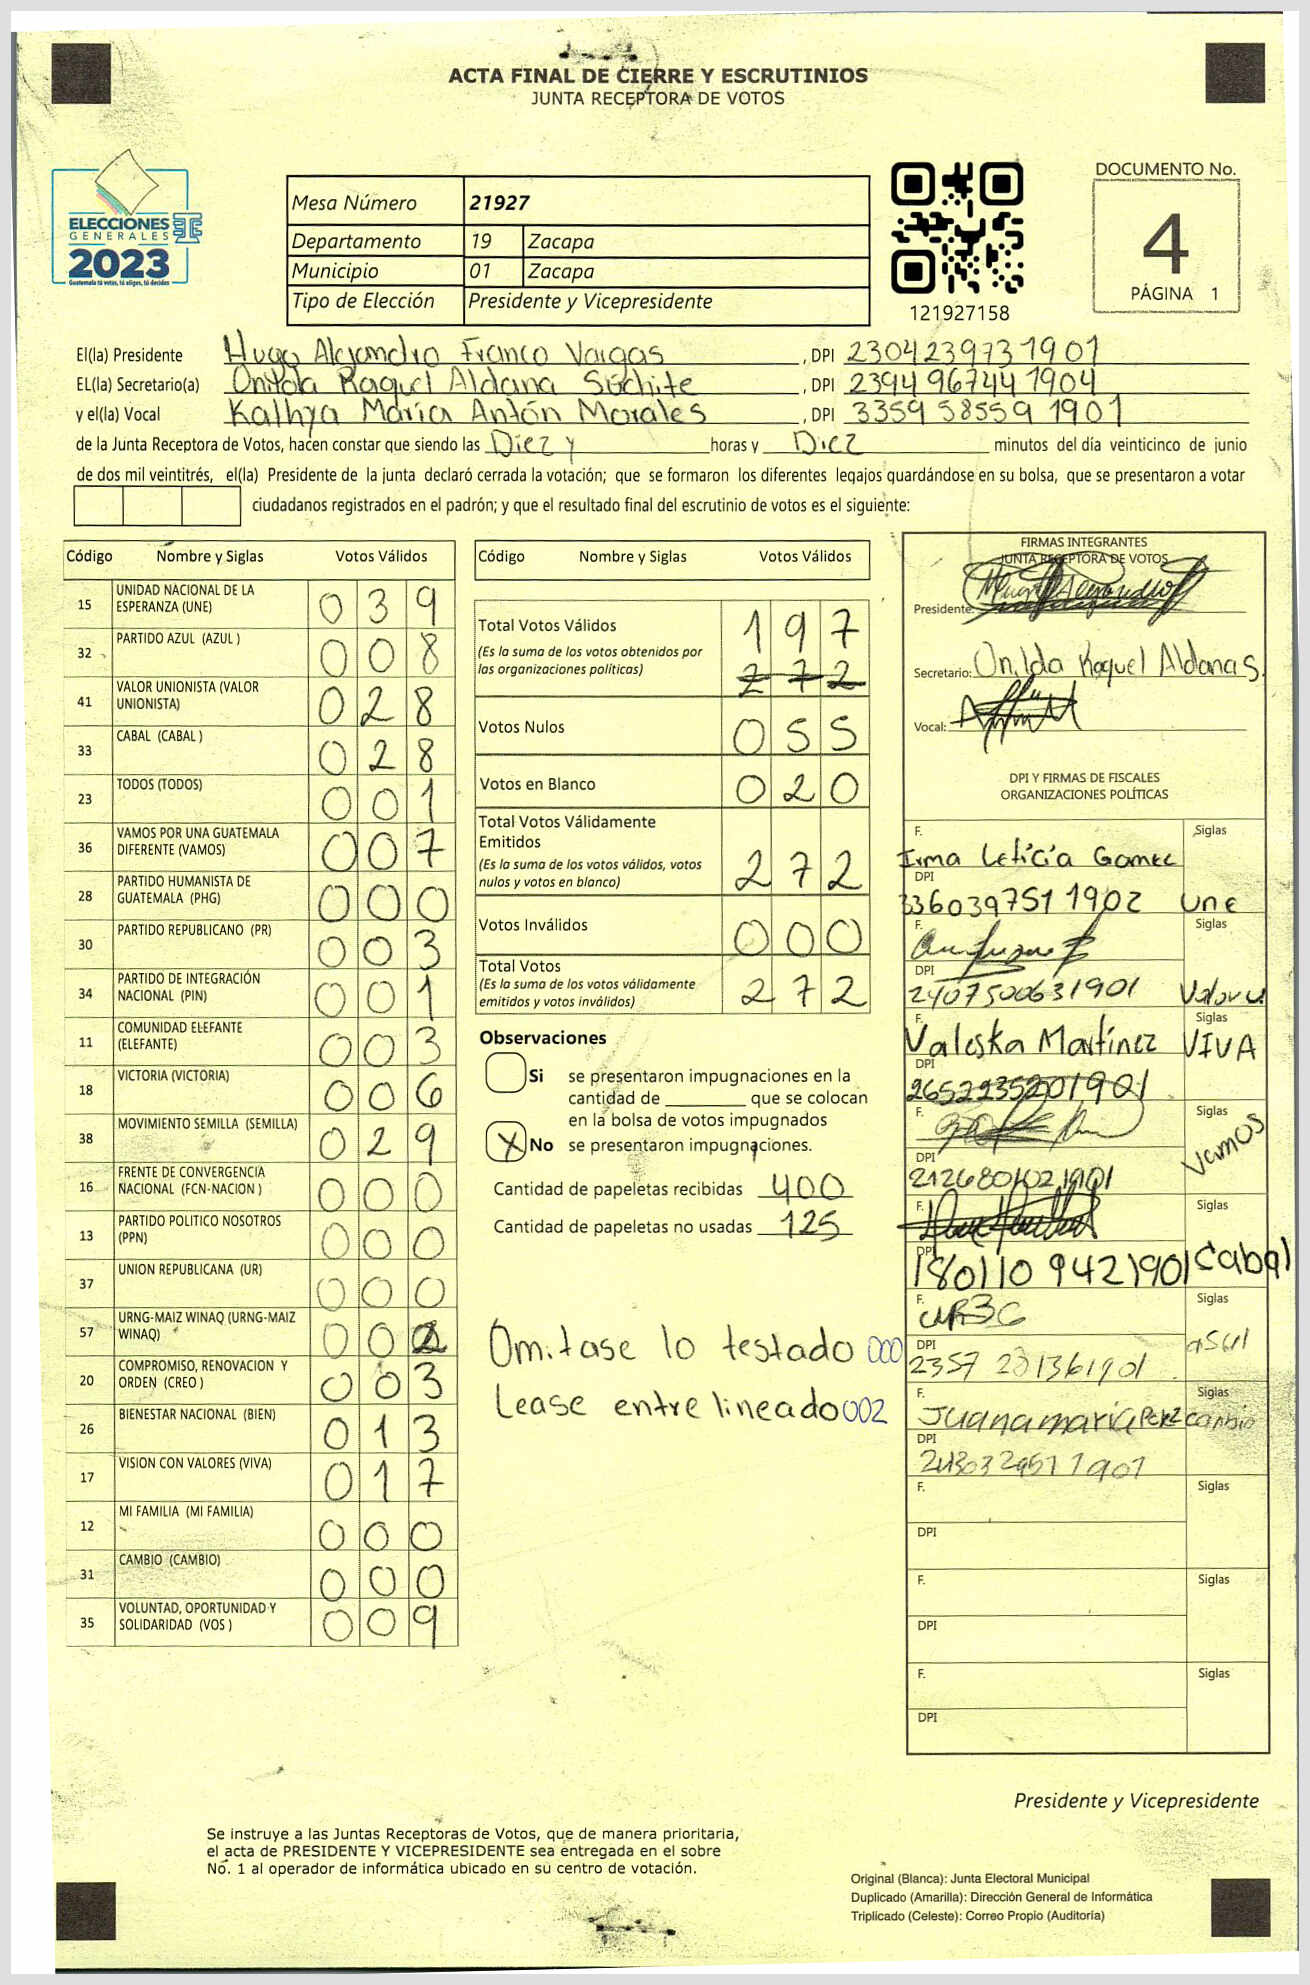 ACTA FINAL DE CIERRE Y ESCRUTINIOS
JUNTA RECEPTORA DE VOTOS
ELECCIONES
GENERALES
2023
Guatemala tú votas, tú eliges, tú decides
Mesa Número 21927
Departamento 19 Zacapa
Municipio 01 Zacapa
Tipo de Elección Presidente y Vicepresidente
121927158
DOCUMENTO No.
4
PÁGINA 1
El(la) Presidente Hugo Alejandro Franco Vargas, DPI 2304239731901
EL(la) Secretario(a) Onilda Raquel Aldana Súchite, DPI 2394 96744 1904
y el(la) Vocal Kathya María Antón Morales, DPI 3359 58559 1901
de la Junta Receptora de Votos, hacen constar que siendo las Diez y horas y Diez minutos del día veinticinco de junio
de dos mil veintitrés, el(la) Presidente de la junta declaró cerrada la votación; que se formaron los diferentes legajos guardándose en su bolsa, que se presentaron a votar
ciudadanos registrados en el padrón; y que el resultado final del escrutinio de votos es el siguiente:
Código Nombre y Siglas Votos Válidos
15 UNIDAD NACIONAL DE LA ESPERANZA (UNE) 039
32 PARTIDO AZUL (AZUL ) 008
41 VALOR UNIONISTA (VALOR UNIONISTA) 028
33 CABAL (CABAL ) 028
23 TODOS (TODOS) 001
36 VAMOS POR UNA GUATEMALA DIFERENTE (VAMOS) 007
28 PARTIDO HUMANISTA DE GUATEMALA (PHG) 000
30 PARTIDO REPUBLICANO (PR) 003
34 PARTIDO DE INTEGRACIÓN NACIONAL (PIN) 001
11 COMUNIDAD ELEFANTE (ELEFANTE) 003
18 VICTORIA (VICTORIA) 006
38 MOVIMIENTO SEMILLA (SEMILLA) 029
16 FRENTE DE CONVERGENCIA NACIONAL (FCN-NACION ) 000
13 PARTIDO POLITICO NOSOTROS (PPN) 000
37 UNION REPUBLICANA (UR) 000
57 URNG-MAIZ WINAQ (URNG-MAIZ WINAQ) 002
20 COMPROMISO, RENOVACION Y ORDEN (CREO ) 003
26 BIENESTAR NACIONAL (BIEN) 013
17 VISION CON VALORES (VIVA) 017
12 MI FAMILIA (MI FAMILIA) 000
31 CAMBIO (CAMBIO) 000
35 VOLUNTAD, OPORTUNIDAD Y SOLIDARIDAD (VOS ) 009
Código Nombre y Siglas Votos Válidos
Total Votos Válidos 197
(Es la suma de los votos obtenidos por
las organizaciones políticas) 272
Votos Nulos 055
Votos en Blanco 020
Total Votos Válidamente
Emitidos
(Es la suma de los votos válidos, votos
nulos y votos en blanco) 272
Votos Inválidos 000
Total Votos
(Es la suma de los votos válidamente
emitidos y votos inválidos) 272
Observaciones
Si se presentaron impugnaciones en la
cantidad de ________ que se colocan
en la bolsa de votos impugnados
X No se presentaron impugnaciones.
Cantidad de papeletas recibidas 400
Cantidad de papeletas no usadas 125
Omitase lo testado 000
Lease entre lineado 002
FIRMAS INTEGRANTES
JUNTA RECEPTORA DE VOTOS
Presidente:
Secretario: Onilda Raquel Aldana S.
Vocal:
DPI Y FIRMAS DE FISCALES
ORGANIZACIONES POLÍTICAS
F. Siglas
Irma Leticia Gamec
DPI
336039751 1902 une
F. Siglas
DPI
2407500631901 Valor u
F. Siglas
Valeska Martínez VIVA
DPI
2652235201901
F. Siglas
Vamos
DPI
2126801021901
F. Siglas
DPI
180110 9421901 Cabal
F. Siglas
DPI
2357 281361901
F. Siglas
Juana maria Perez cambio
DPI
F. Siglas
DPI
F. Siglas
DPI
F. Siglas
DPI
Presidente y Vicepresidente
Se instruye a las Juntas Receptoras de Votos, que de manera prioritaria,
el acta de PRESIDENTE Y VICEPRESIDENTE sea entregada en el sobre
No. 1 al operador de informática ubicado en su centro de votación.
Original (Blanca): Junta Electoral Municipal
Duplicado (Amarilla): Dirección General de Informática
Triplicado (Celeste): Correo Propio (Auditoría)